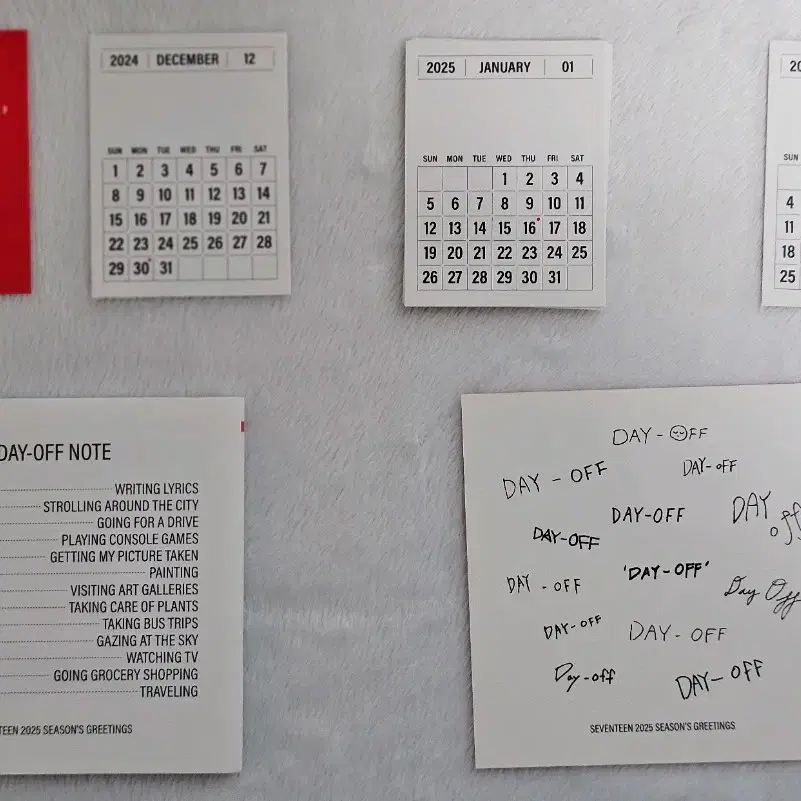 2024 DECEMBER 12
SUN MON TUE WED THU FRI SAT
1 2 3 4 5 6 7
8 9 10 11 12 13 14
15 16 17 18 19 20 21
22 23 24 25 26 27 28
29 30 31
2025 JANUARY 01
SUN MON TUE WED THU FRI SAT
1 2 3 4
5 6 7 8 9 10 11
12 13 14 15 16 17 18
19 20 21 22 23 24 25
26 27 28 29 30 31
SUN
4
11
18
25
DAY-OFF NOTE
WRITING LYRICS
STROLLING AROUND THE CITY
GOING FOR A DRIVE
PLAYING CONSOLE GAMES
GETTING MY PICTURE TAKEN
PAINTING
VISITING ART GALLERIES
TAKING CARE OF PLANTS
TAKING BUS TRIPS
GAZING AT THE SKY
WATCHING TV
GOING GROCERY SHOPPING
TRAVELING
TEEN 2025 SEASON'S GREETINGS
DAY-OFF
DAY-OFF
DAY-OFF
DAY-OFF
DAY off
DAY-OFF
DAY-OFF
'DAY-OFF'
Day Off
DAY-OFF
DAY-OFF
Day-off
DAY-OFF
SEVENTEEN 2025 SEASON'S GREETINGS